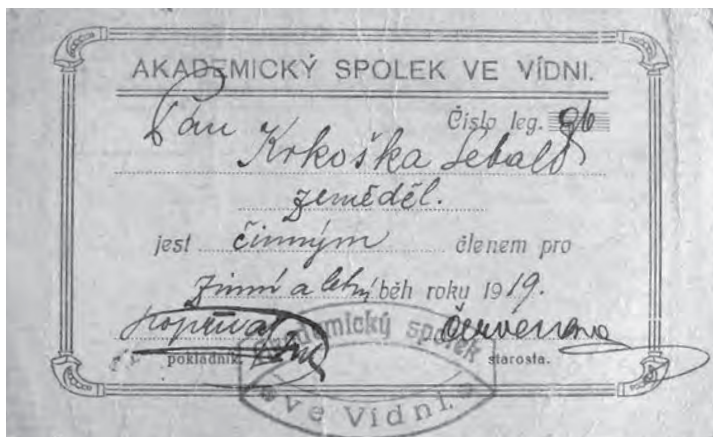 AKADEMICKÝ SPOLEK VE VÍDNI.
Pan Číslo leg. 96
Krkoška Sebald
zeměděl.
jest činným členem pro
zimní a letní běh roku 1919.
pokladník. starosta.
Akademický spolek
ve Vídni.